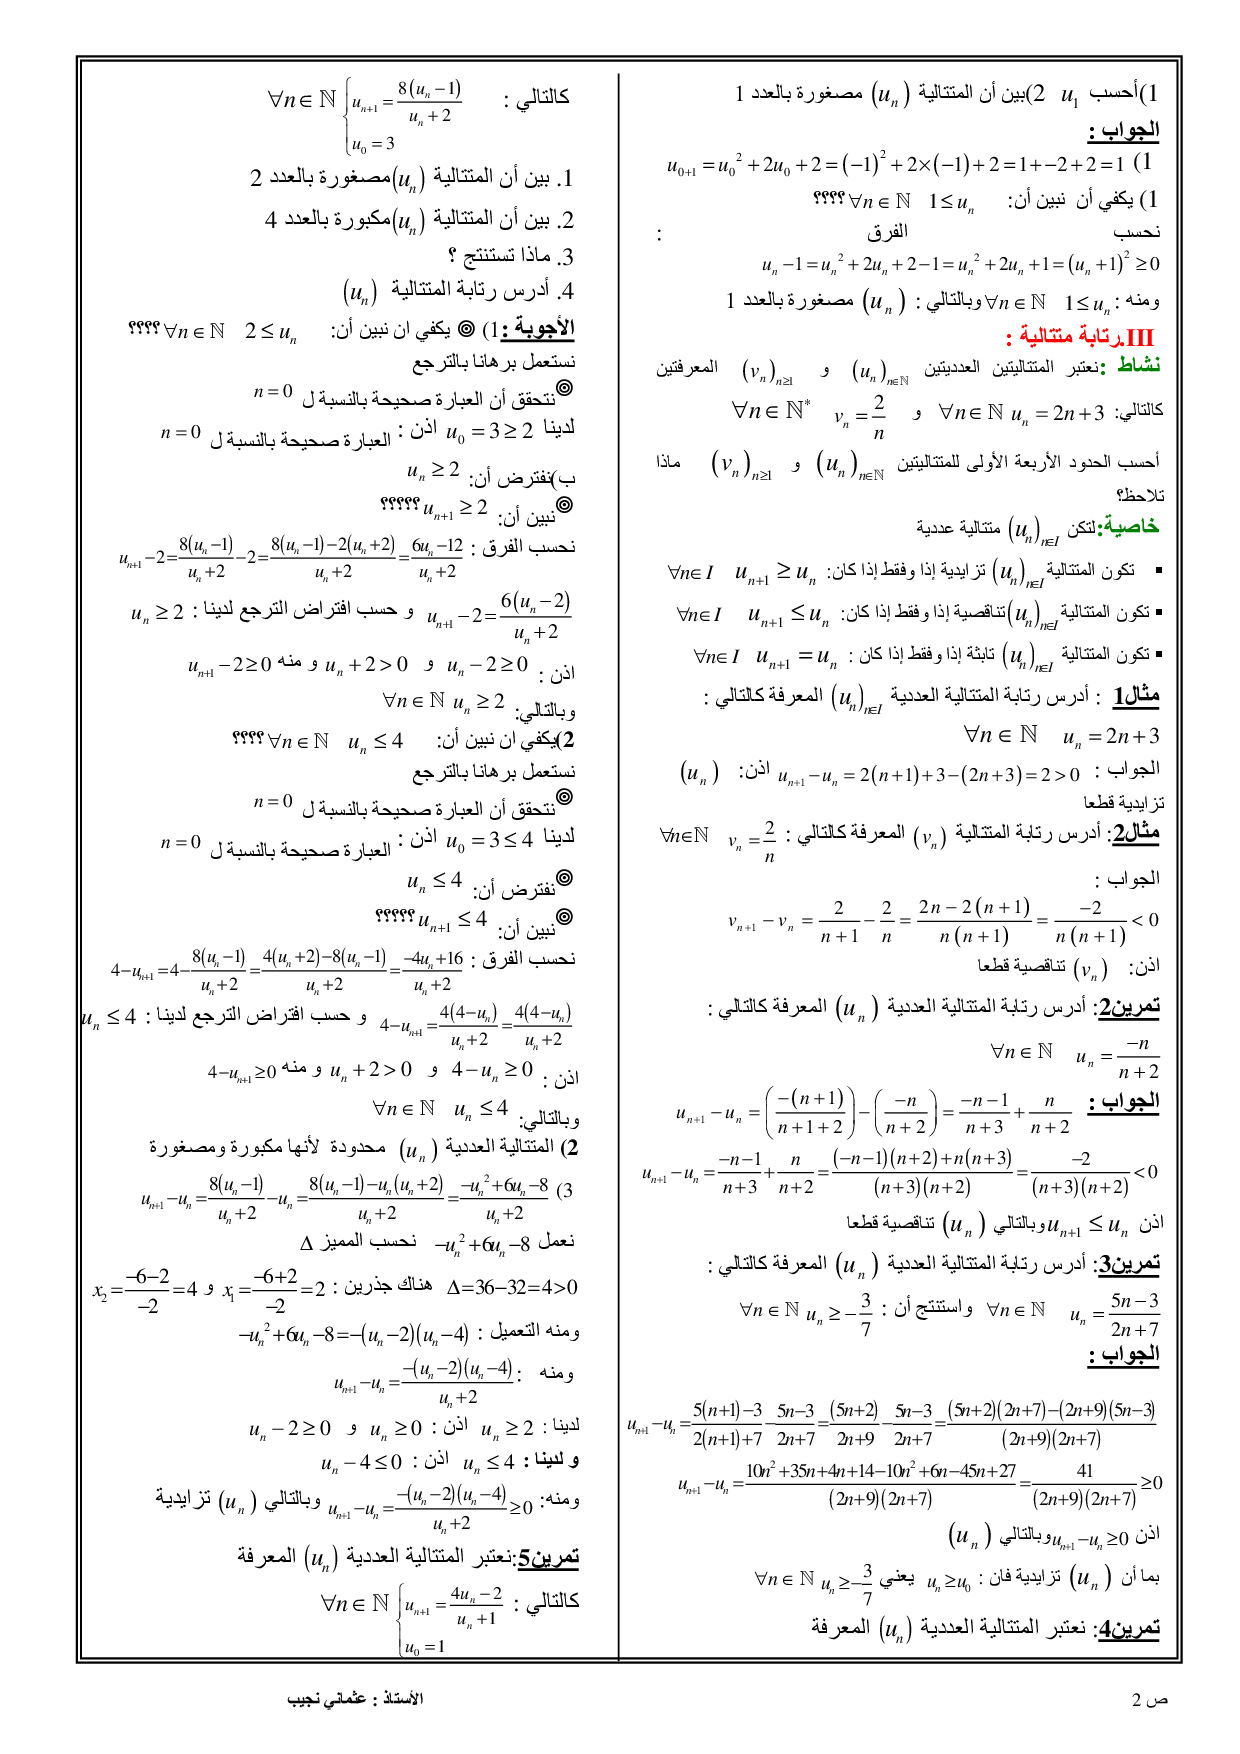 1)أحسب u_1 2)بين أن المتتالية (u_n) مصغورة بالعدد 1
الجواب :
1) u_{0+1} = u_0^2 + 2u_0 + 2 = (−1)^2 + 2×(−1) + 2 = 1+−2+2 = 1
1) يكفي أن نبين أن: 1 ≤ u_n ∀n∈ℕ ؟؟؟؟
نحسب الفرق :
u_n −1 = u_n^2 + 2u_n + 2 −1 = u_n^2 + 2u_n + 1 = (u_n +1)^2 ≥ 0
ومنه : 1 ≤ u_n ∀n∈ℕ وبالتالي : (u_n) مصغورة بالعدد 1
III.رتابة متتالية :
نشاط :نعتبر المتتاليتين العدديتين (u_n)_{n∈ℕ} و (v_n)_{n≥1} المعرفتين
كالتالي: u_n = 2n+3 ∀n∈ℕ و v_n = 2/n ∀n∈ℕ*
أحسب الحدود الأربعة الأولى للمتتاليتين (u_n)_{n∈ℕ} و (v_n)_{n≥1} ماذا
تلاحظ؟
خاصية:لتكن (u_n)_{n∈I} متتالية عددية
▪ تكون المتتالية (u_n)_{n∈I} تزايدية إذا وفقط إذا كان: u_{n+1} ≥ u_n ∀n∈I
▪ تكون المتتالية (u_n)_{n∈I} تناقصية إذا وفقط إذا كان: u_{n+1} ≤ u_n ∀n∈I
▪ تكون المتتالية (u_n)_{n∈I} تابثة إذا وفقط إذا كان : u_{n+1} = u_n ∀n∈I
مثال1 : أدرس رتابة المتتالية العددية (u_n)_{n∈I} المعرفة كالتالي :
u_n = 2n+3 ∀n∈ℕ
الجواب : u_{n+1} − u_n = 2(n+1)+3−(2n+3) = 2 > 0 اذن: (u_n)
تزايدية قطعا
مثال2: أدرس رتابة المتتالية (v_n) المعرفة كالتالي : v_n = 2/n ∀n∈ℕ
الجواب :
v_{n+1} − v_n = 2/(n+1) − 2/n = (2n−2(n+1))/(n(n+1)) = −2/(n(n+1)) < 0
اذن: (v_n) تناقصية قطعا
تمرين2: أدرس رتابة المتتالية العددية (u_n) المعرفة كالتالي :
u_n = −n/(n+2) ∀n∈ℕ
الجواب : u_{n+1} − u_n = (−(n+1)/(n+1+2)) − (−n/(n+2)) = (−n−1)/(n+3) + n/(n+2)
u_{n+1} − u_n = (−n−1)/(n+3) + n/(n+2) = ((−n−1)(n+2)+n(n+3))/((n+3)(n+2)) = −2/((n+3)(n+2)) < 0
اذن u_{n+1} ≤ u_n وبالتالي (u_n) تناقصية قطعا
تمرين3: أدرس رتابة المتتالية العددية (u_n) المعرفة كالتالي :
u_n = (5n−3)/(2n+7) ∀n∈ℕ واستنتج أن : u_n ≥ −3/7 ∀n∈ℕ
الجواب :
u_{n+1} − u_n = (5(n+1)−3)/(2(n+1)+7) − (5n−3)/(2n+7) = (5n+2)/(2n+9) − (5n−3)/(2n+7) = ((5n+2)(2n+7)−(2n+9)(5n−3))/((2n+9)(2n+7))
u_{n+1} − u_n = (10n^2+35n+4n+14−10n^2+6n−45n+27)/((2n+9)(2n+7)) = 41/((2n+9)(2n+7)) ≥ 0
اذن u_{n+1} − u_n ≥ 0 وبالتالي (u_n)
بما أن (u_n) تزايدية فان : u_n ≥ u_0 يعني u_n ≥ −3/7 ∀n∈ℕ
تمرين4: نعتبر المتتالية العددية (u_n) المعرفة
كالتالي : { u_{n+1} = 8(u_n −1)/(u_n +2) ; u_0 = 3 ∀n∈ℕ
1. بين أن المتتالية (u_n)مصغورة بالعدد 2
2. بين أن المتتالية (u_n)مكبورة بالعدد 4
3. ماذا تستنتج ؟
4. أدرس رتابة المتتالية (u_n)
الأجوبة :1) ⊚ يكفي ان نبين أن: 2 ≤ u_n ∀n∈ℕ ؟؟؟؟
نستعمل برهانا بالترجع
⊚نتحقق أن العبارة صحيحة بالنسبة ل n = 0
لدينا u_0 = 3 ≥ 2 اذن : العبارة صحيحة بالنسبة ل n = 0
ب)نفترض أن: u_n ≥ 2
⊚نبين أن: u_{n+1} ≥ 2 ؟؟؟؟؟
نحسب الفرق : u_{n+1} −2 = 8(u_n −1)/(u_n +2) − 2 = (8(u_n −1)−2(u_n +2))/(u_n +2) = (6u_n −12)/(u_n +2)
u_{n+1} −2 = 6(u_n −2)/(u_n +2) و حسب افتراض الترجع لدينا : u_n ≥ 2
اذن : u_n −2 ≥ 0 و u_n +2 > 0 و منه u_{n+1} −2 ≥ 0
وبالتالي: u_n ≥ 2 ∀n∈ℕ
2)يكفي ان نبين أن: u_n ≤ 4 ∀n∈ℕ ؟؟؟؟
نستعمل برهانا بالترجع
⊚نتحقق أن العبارة صحيحة بالنسبة ل n = 0
لدينا u_0 = 3 ≤ 4 اذن : العبارة صحيحة بالنسبة ل n = 0
⊚نفترض أن: u_n ≤ 4
⊚نبين أن: u_{n+1} ≤ 4 ؟؟؟؟؟
نحسب الفرق : 4−u_{n+1} = 4 − 8(u_n −1)/(u_n +2) = (4(u_n +2)−8(u_n −1))/(u_n +2) = (−4u_n +16)/(u_n +2)
4−u_{n+1} = 4(4−u_n)/(u_n +2) = 4(4−u_n)/(u_n +2) و حسب افتراض الترجع لدينا : u_n ≤ 4
اذن : 4−u_n ≥ 0 و u_n +2 > 0 و منه 4−u_{n+1} ≥ 0
وبالتالي: u_n ≤ 4 ∀n∈ℕ
2) المتتالية العددية (u_n) محدودة لأنها مكبورة ومصغورة
3) u_{n+1} − u_n = 8(u_n −1)/(u_n +2) − u_n = (8(u_n −1)−u_n(u_n +2))/(u_n +2) = (−u_n^2 +6u_n −8)/(u_n +2)
نعمل −u_n^2 +6u_n −8 نحسب المميز Δ
Δ=36−32=4>0 هناك جذرين : x_1 = (−6+2)/−2 = 2 و x_2 = (−6−2)/−2 = 4
ومنه التعميل : −u_n^2 +6u_n −8 = −(u_n −2)(u_n −4)
ومنه : u_{n+1} − u_n = −(u_n −2)(u_n −4)/(u_n +2)
لدينا : u_n ≥ 2 اذن : u_n ≥ 0 و u_n −2 ≥ 0
و لدينا : u_n ≤ 4 اذن : u_n −4 ≤ 0
ومنه: u_{n+1} − u_n = −(u_n −2)(u_n −4)/(u_n +2) ≥ 0 وبالتالي (u_n) تزايدية
تمرين5:نعتبر المتتالية العددية (u_n) المعرفة
كالتالي : { u_{n+1} = (4u_n −2)/(u_n +1) ; u_0 = 1 ∀n∈ℕ
ص 2
الأستاذ : عثماني نجيب